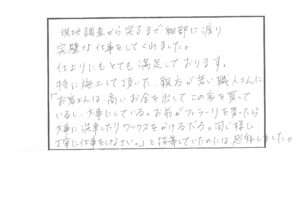 現地調査から完了まで細部に渡り
完璧な仕事をしてくれました。
仕上りにもとても満足しております。
特に施工して頂いた親方が若い職人さんに
「お客さんは高いお金を出してこの家を買って
いるし、大事にしている。お前がフェラーリを買ったら
大事に洗車したりワックスをかけるだろう。同じ様に
丁寧に仕事をしなさい。」と指導していたのには感動しました。